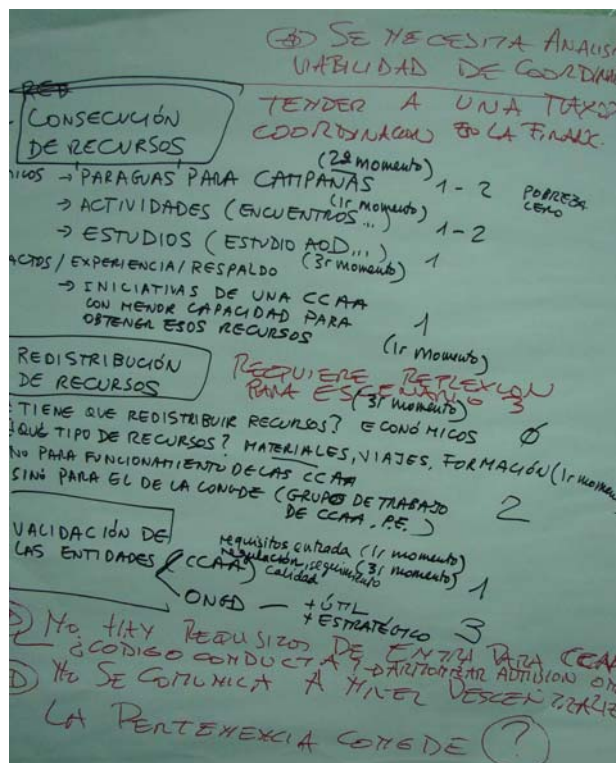 SE NECESITA ANALISIS
VIABILIDAD DE COORDINA
RED
TENDER A UNA
CONSECUCIÓN
DE RECURSOS
COORDINACION EN LA FINANC.
(2º momento)
→ PARAGUAS PARA CAMPAÑAS 1-2 POBREZA CERO
(1r momento)
→ ACTIVIDADES (ENCUENTROS...) 1-2
→ ESTUDIOS (ESTUDIO AOD...) 1
ACTOS/EXPERIENCIA/RESPALDO (3r momento)
→ INICIATIVAS DE UNA CCAA
CON MENOR CAPACIDAD PARA
OBTENER ESOS RECURSOS 1
(1r momento)
REDISTRIBUCIÓN
DE RECURSOS
REQUIERE REFLEXION
PARA ESCENARIO 3
(3r momento)
TIENE QUE REDISTRIBUIR RECURSOS? ECONÓMICOS Ø
¿QUÉ TIPO DE RECURSOS? MATERIALES, VIAJES, FORMACIÓN (1r momen
NO PARA FUNCIONAMIENTO DE LAS CCAA
SINO PARA EL DE LA CONGDE (GRUPOS DE TRABAJO 2
DE CCAA, P.E.)
VALIDACIÓN DE
LAS ENTIDADES
requisitos entrada (1r momento)
CCAA regulación, seguimiento (3r momento) 1
calidad
ONGD — + ÚTIL
+ ESTRATÉGICO 3
NO HAY REQUISIZOS DE ENTRA PARA CCAA
¿CODIGO CONDUCTA Y ARMONIZAR ADMISION ON
NO SE COMUNICA A NIVEL DESCENTRALIZ
LA PERTENENCIA CONGDE ?